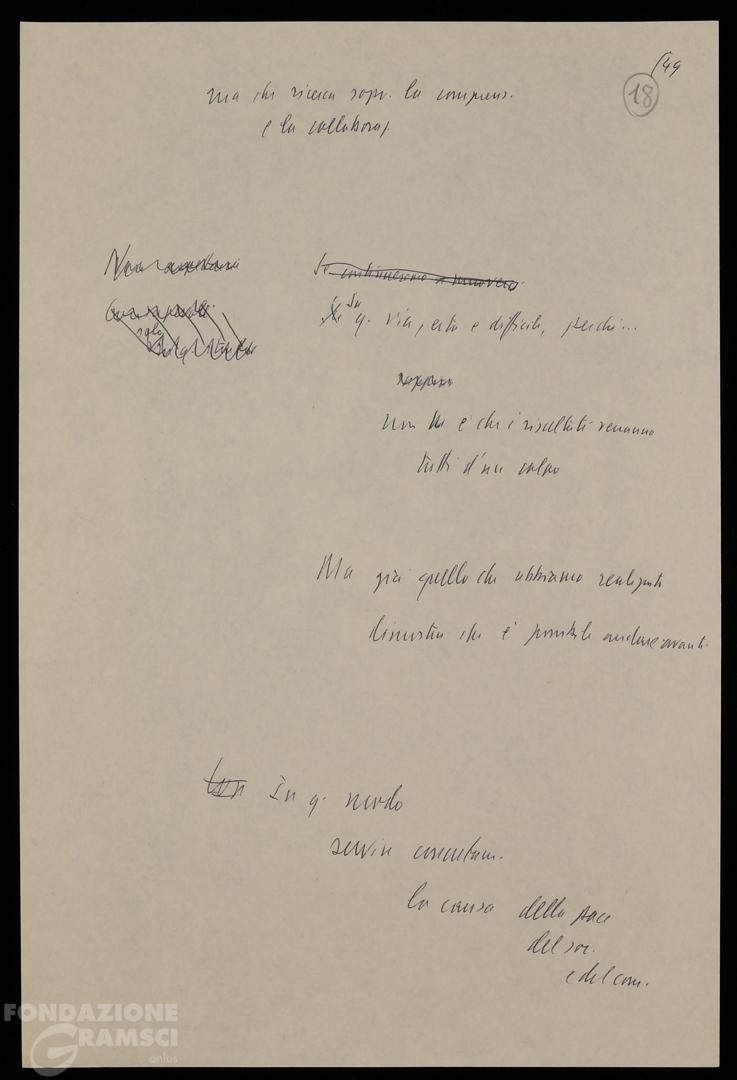 /44
18
ma che ricerca sopr. la comprens.
e la collaboraz.
Non aspettarsi
Se continueremo a muoverci
Su q. via, certo è difficile, perché...
solo
non è che i risultati verranno
tutti d'un colpo
Ma già quello che abbiamo realizzato
dimostra che è possibile andare avanti.
In q. modo
servire concretam.
la causa della pace
del soc.
e del com.
FONDAZIONE
GRAMSCI
onlus